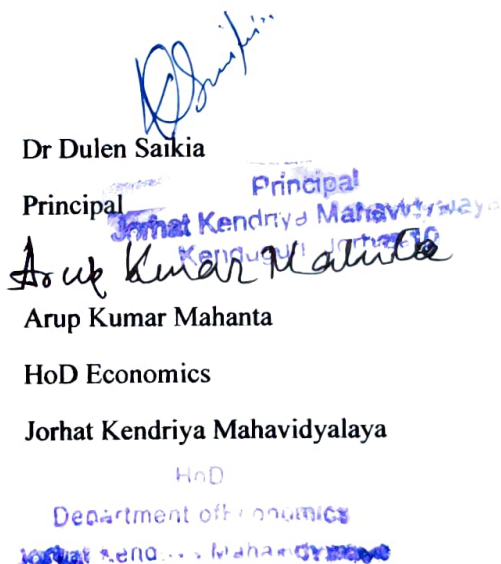 Dr Dulen Saikia
Principal
Principal
Jorhat Kendriya Mahavidyalaya
Kenduguri, Jorhat-10
Arup Kumar Mahanta
Arup Kumar Mahanta
HoD Economics
Jorhat Kendriya Mahavidyalaya
HoD
Department of Economics
Jorhat Kend Mahavidyalaya